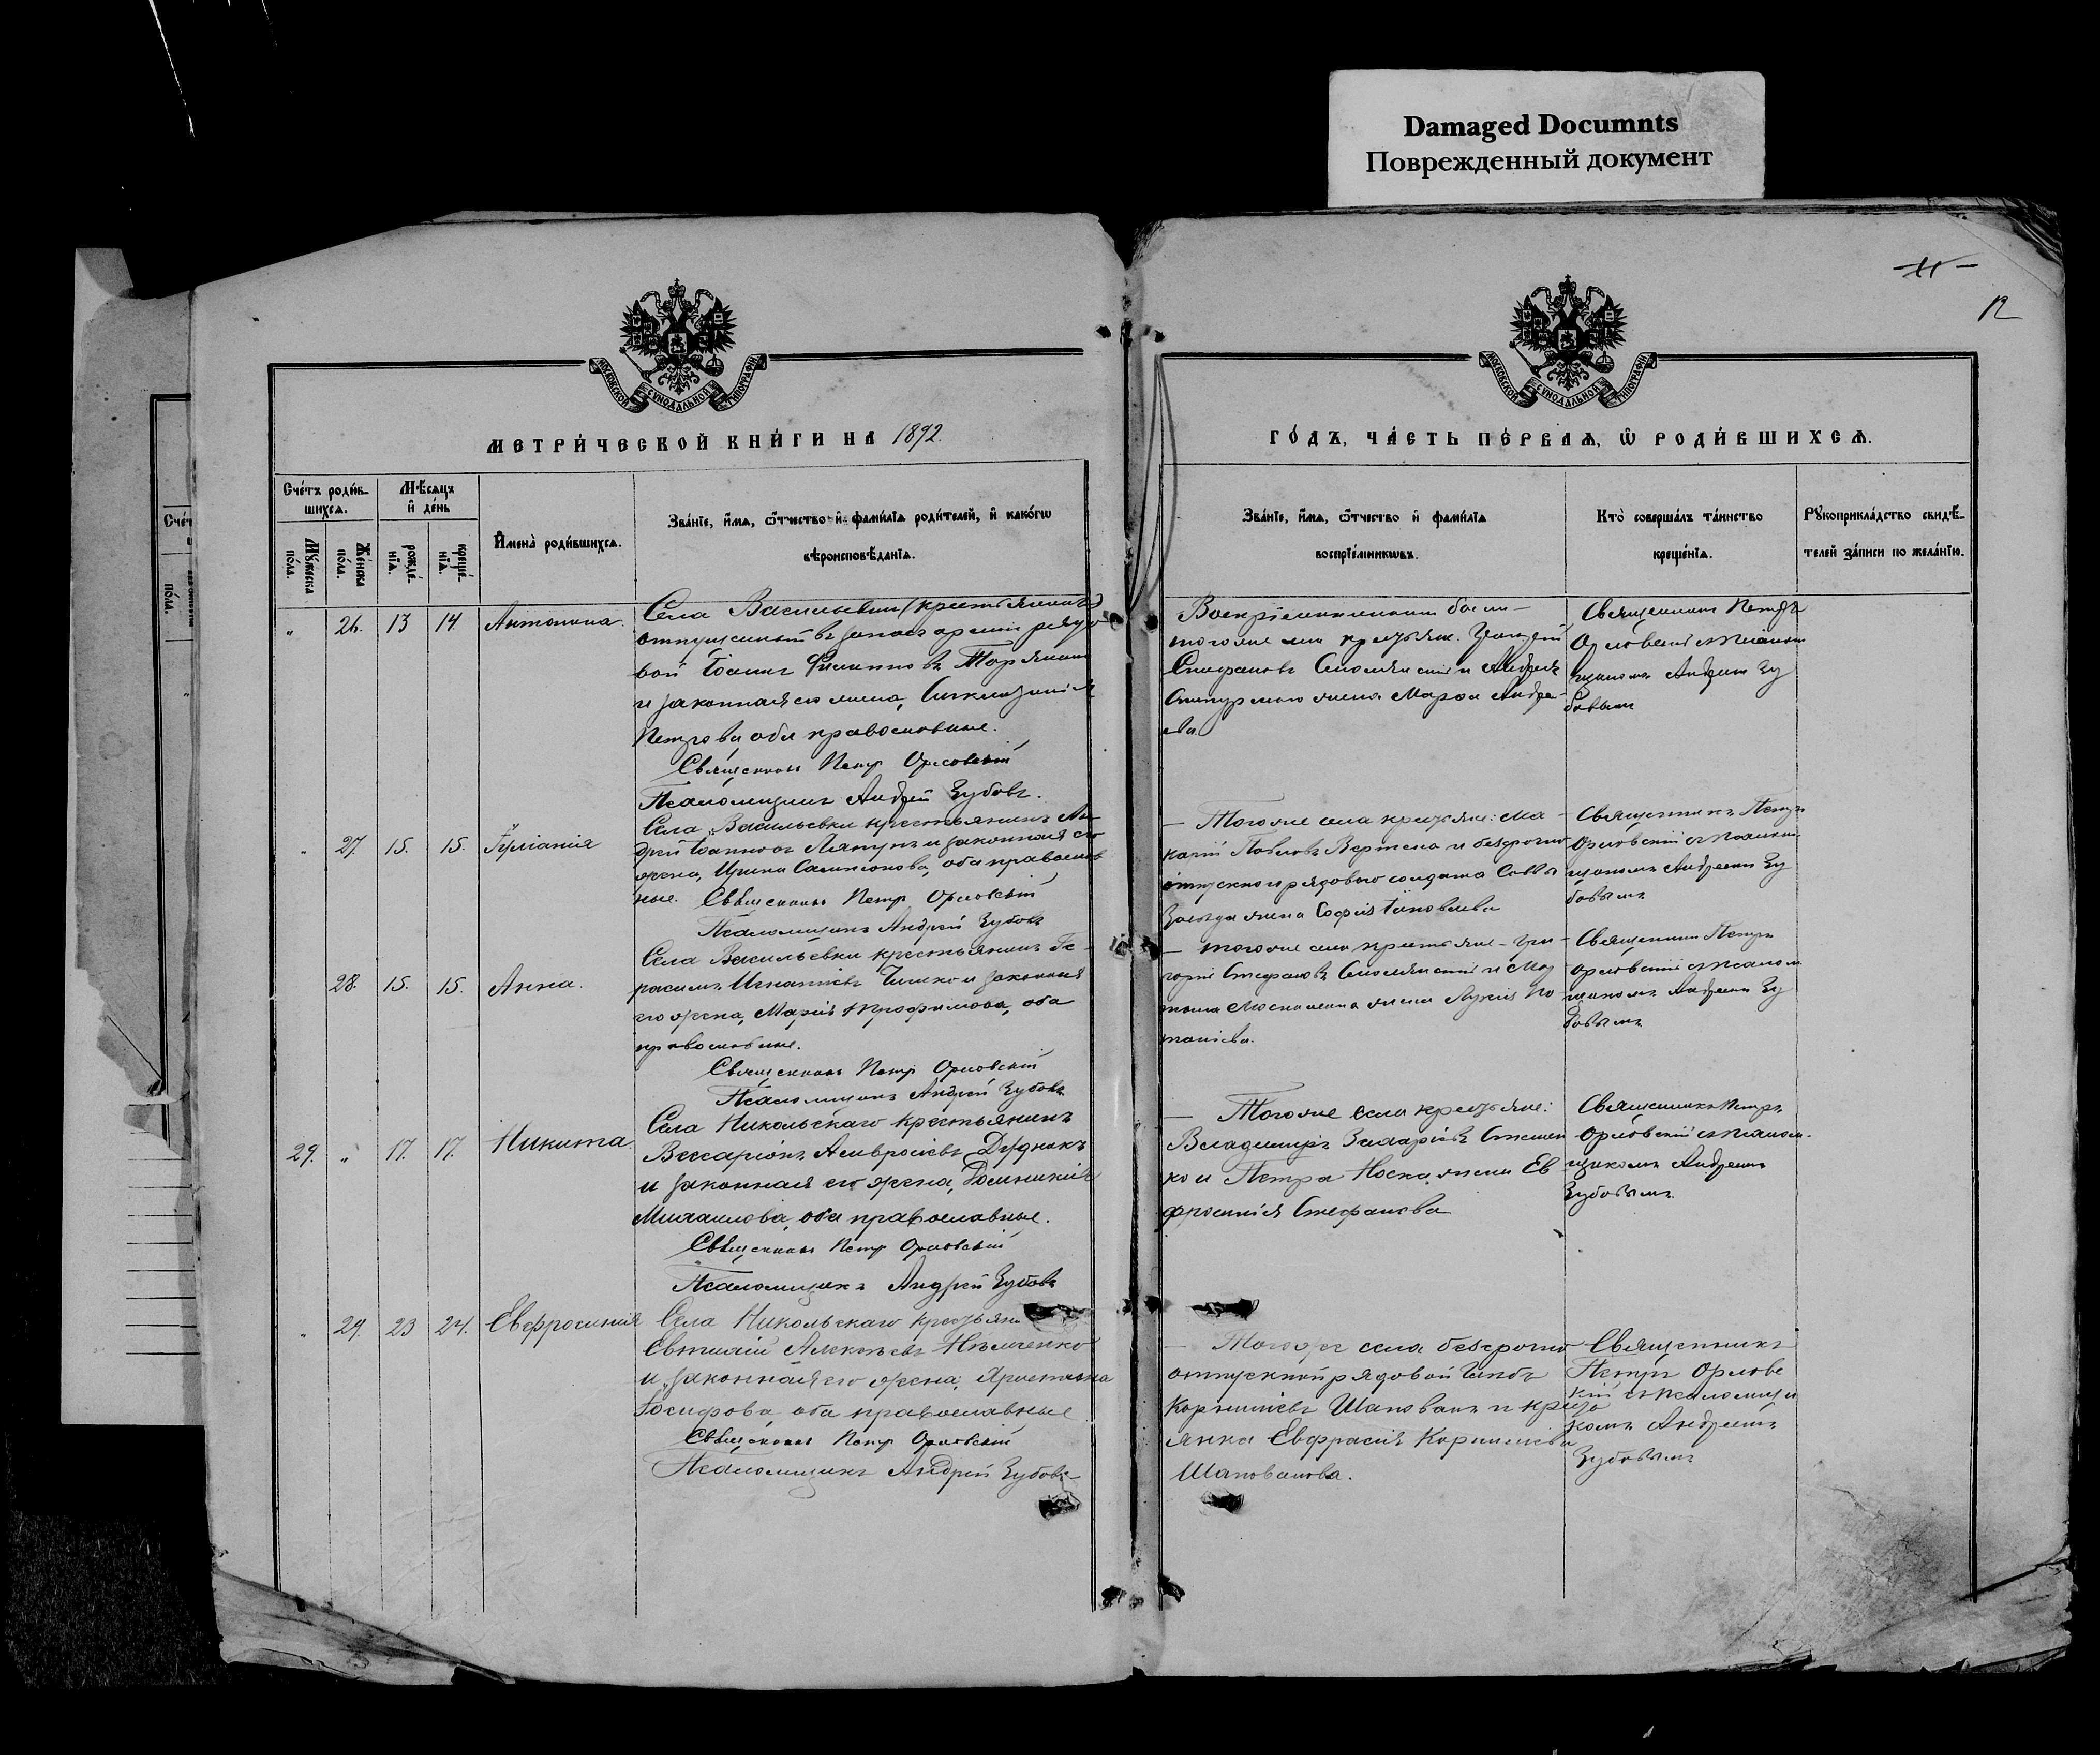 Damaged Documnts
Поврежденный документ
12
МОСКОВСКОЙ СѴНОДАЛЬНОЙ ТИПОГРАФІИ
МОСКОВСКОЙ СѴНОДАЛЬНОЙ ТИПОГРАФІИ
МЕТРИ́ЧЕСКОЙ КНИ́ГИ НА 1892.
ГО́ДЪ, ЧА́СТЬ ПЕ́РВАЯ, Ѿ РОДИ́ВШИХСЯ.
Сче́тъ роди́в-
шихся.
Мѣ́сяцъ
и҆ де́нь
Мꙋ́жеска
по́ла.
Же́нска
по́ла.
рожде́-
нїя.
креще́-
нїя.
И҆мена̀ роди́вшихся.
Зва́нїе, и҆́мя, ѻ҆́тчество и҆ фами́лїя роди́телей, и҆ како́гѡ
вѣроисповѣ́данїя.
Зва́нїе, и҆́мя, ѻ҆́тчество и҆ фами́лїя
воспрїе́мникѡвъ.
Кто̀ соверша́лъ та́инство
креще́нїя.
Рꙋкоприкла́дство свидѣ́-
телей за́писи по жела́нїю.
" 26. 13 14. Антонина.
Села Васильевки крестьянинъ
отпущенный въ запасъ арміи рядо
вой Іоаннъ Филипповъ
и законная его жена,
Петрова, оба православные.
Священникъ Петр Орловскій
Псаломщикъ Андрей Зубовъ.
Степановъ и Андрея
жена Марѳа Андре-
ева.
Священникъ Петръ
Орловскій съ псалом
щикомъ Андреем Зу
бовымъ
" 27. 15. 15. Іуліанія
Села Васильевки крестьянинъ Ан
дрей Іоанновъ Ляпунъ и законная его
жена, Ирина Сампсонова, оба православ
ные. Священникъ Петр Орловскій
Псаломщикъ Андрей Зубовъ
— Того же села крестьяне: Ма
карій Павловъ Вертела и безсрочно
отпускного рядового солдата Саввы
жена Софія Іаковлева
Священникъ Петръ
Орловскій съ псалом
щикомъ Андреем Зу
бовымъ
28. 15. 15. Анна.
Села Васильевки крестьянинъ Ге-
расимъ Игнатіевъ и законная
его жена, Марія Трофимова, оба
православные.
Священникъ Петр Орловскій
Псаломщикъ Андрей Зубовъ
— того же села крестьяне — Гри
горій Стефановъ и
жена По
тапіева.
Священникъ Петръ
Орловскій съ псалом
щикомъ Андреем Зу
бовымъ
29. " 17. 17. Никита
Села Никольскаго крестьянинъ
Виссаріонъ Амвросіевъ Дудникъ
и законная его жена, Домникія
Михаилова, оба православные.
Священникъ Петр Орловскій
Псаломщикъ Андрей Зубовъ
— Того же села крестьяне:
Владимиръ Захаріевъ Стешен
ко и Петра Носка жена Ев
фросинія Стефанова
Священникъ Петръ
Орловскій съ псалом-
щикомъ Андреемъ
Зубовымъ.
" 29. 23 24. Евфросинія
Села Никольскаго крестьян
Евтихій Алексѣевъ Нѣмченко
и законная его жена, Христина
Іосифова, оба православные
Священникъ Петр Орловскій
Псаломщикъ Андрей Зубовъ
— Того же села безсрочно
отпускной рядовой
Корниліевъ Шаповалъ и кресть
янка Евфрасія Корниліева
Шаповалова.
Священникъ
Петръ Орловс
кій съ псаломщи
комъ Андреемъ
Зубовымъ